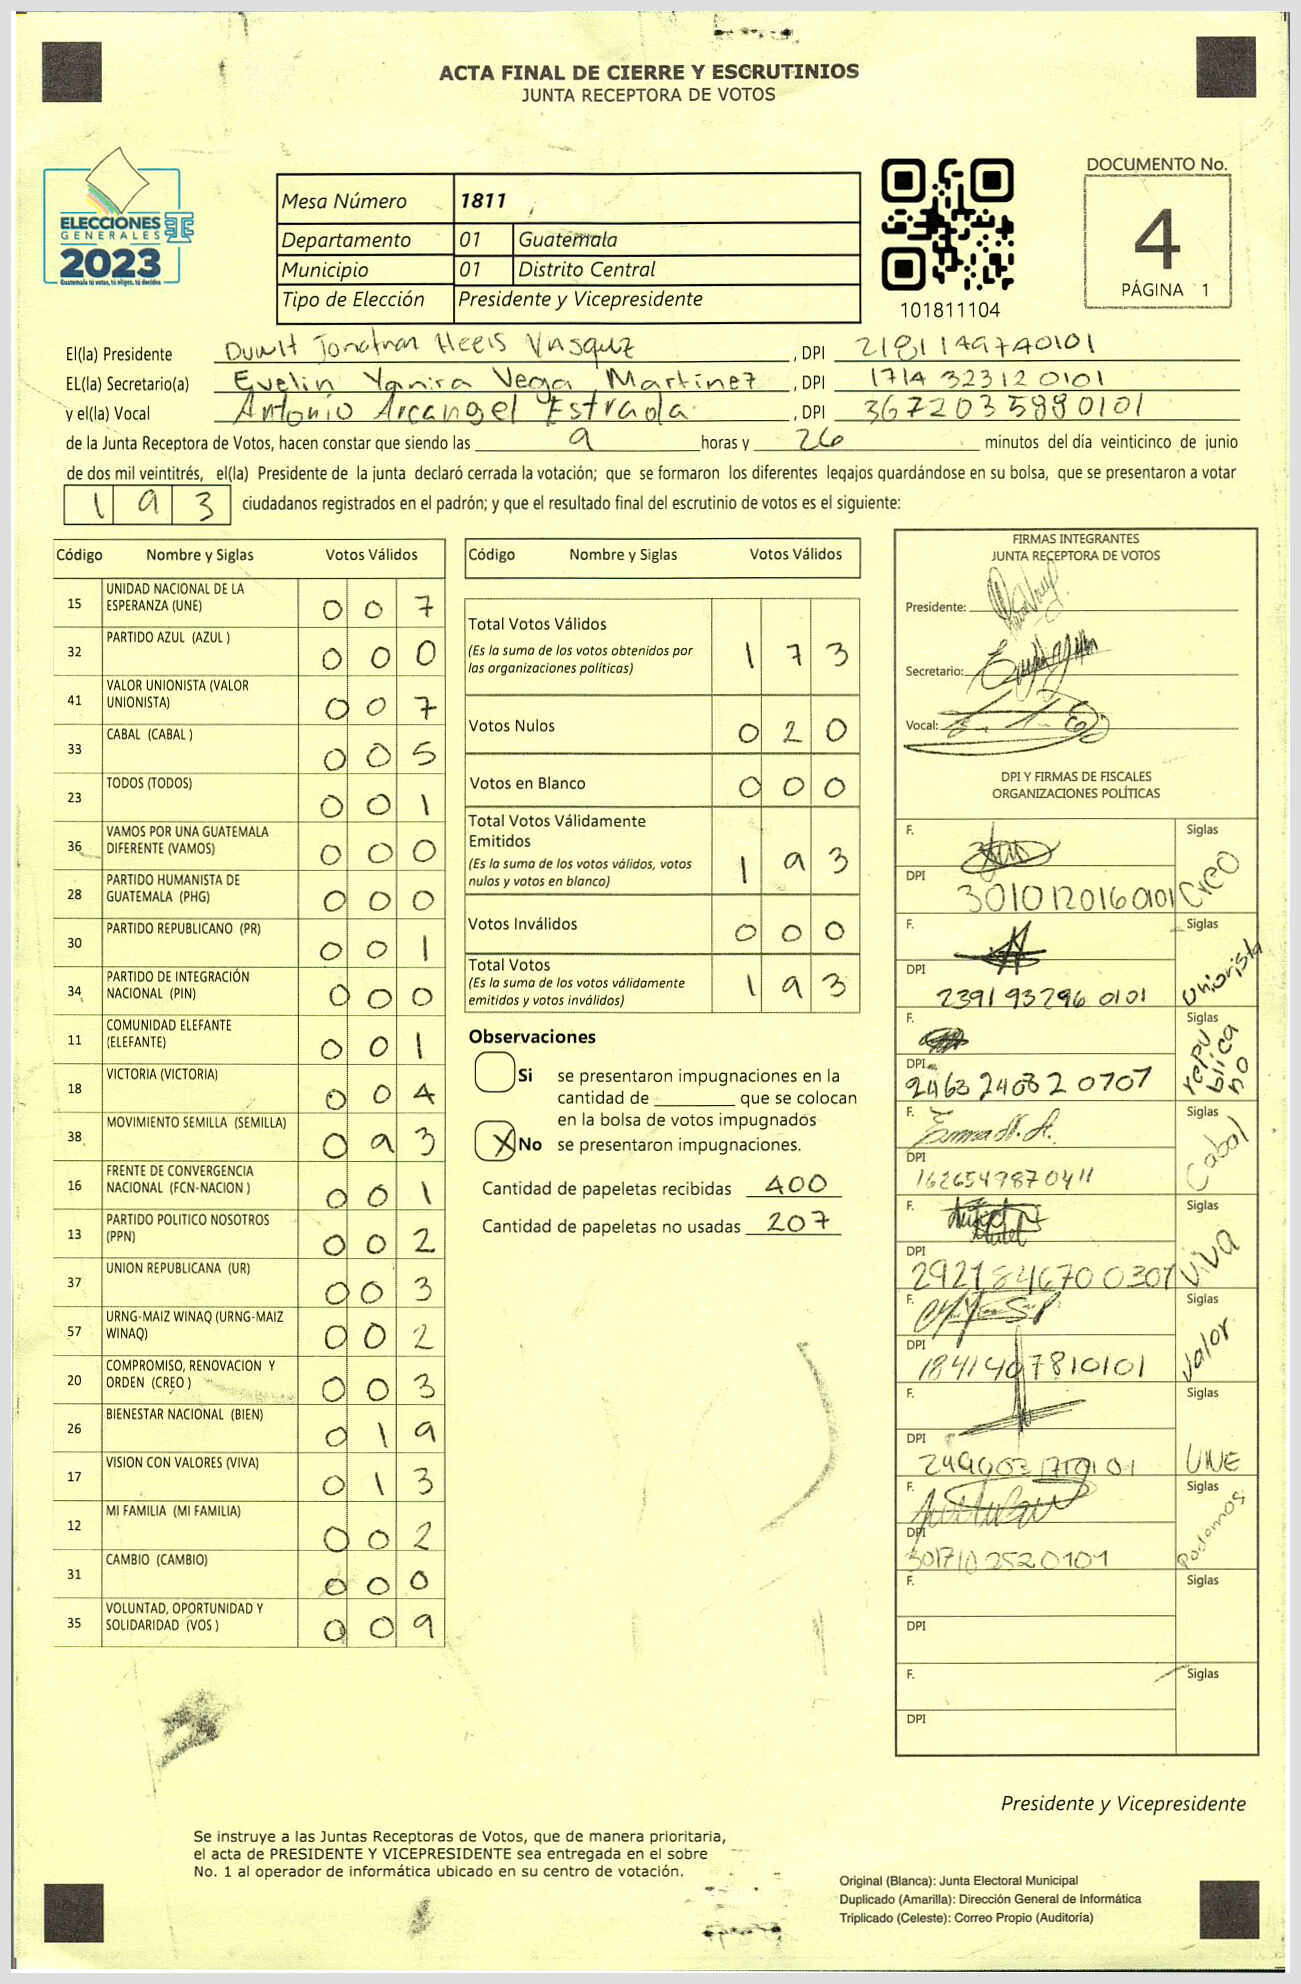 ACTA FINAL DE CIERRE Y ESCRUTINIOS
JUNTA RECEPTORA DE VOTOS
ELECCIONES
GENERALES
2023
Guatemala tú votas, tú eliges, tú decides
Mesa Número 1811
Departamento 01 Guatemala
Municipio 01 Distrito Central
Tipo de Elección Presidente y Vicepresidente
101811104
DOCUMENTO No.
4
PÁGINA 1
El(la) Presidente Jonathan , DPI 2181149740101
EL(la) Secretario(a) Evelin Yanira Vega Martinez , DPI 1714 32312 0101
y el(la) Vocal Antonio Arcangel Estrada , DPI 3672035990101
de la Junta Receptora de Votos, hacen constar que siendo las 9 horas y 26 minutos del día veinticinco de junio
de dos mil veintitrés, el(la) Presidente de la junta declaró cerrada la votación; que se formaron los diferentes legajos guardándose en su bolsa, que se presentaron a votar
193 ciudadanos registrados en el padrón; y que el resultado final del escrutinio de votos es el siguiente:
Código Nombre y Siglas Votos Válidos
15 UNIDAD NACIONAL DE LA
ESPERANZA (UNE) 0 0 7
32 PARTIDO AZUL (AZUL ) 0 0 0
41 VALOR UNIONISTA (VALOR
UNIONISTA) 0 0 7
33 CABAL (CABAL ) 0 0 5
23 TODOS (TODOS) 0 0 1
36 VAMOS POR UNA GUATEMALA
DIFERENTE (VAMOS) 0 0 0
28 PARTIDO HUMANISTA DE
GUATEMALA (PHG) 0 0 0
30 PARTIDO REPUBLICANO (PR) 0 0 1
34 PARTIDO DE INTEGRACIÓN
NACIONAL (PIN) 0 0 0
11 COMUNIDAD ELEFANTE
(ELEFANTE) 0 0 1
18 VICTORIA (VICTORIA) 0 0 4
38 MOVIMIENTO SEMILLA (SEMILLA) 0 9 3
16 FRENTE DE CONVERGENCIA
NACIONAL (FCN-NACION ) 0 0 1
13 PARTIDO POLITICO NOSOTROS
(PPN) 0 0 2
37 UNION REPUBLICANA (UR) 0 0 3
57 URNG-MAIZ WINAQ (URNG-MAIZ
WINAQ) 0 0 2
20 COMPROMISO, RENOVACION Y
ORDEN (CREO ) 0 0 3
26 BIENESTAR NACIONAL (BIEN) 0 1 9
17 VISION CON VALORES (VIVA) 0 1 3
12 MI FAMILIA (MI FAMILIA) 0 0 2
31 CAMBIO (CAMBIO) 0 0 0
35 VOLUNTAD, OPORTUNIDAD Y
SOLIDARIDAD (VOS ) 0 0 9
Código Nombre y Siglas Votos Válidos
Total Votos Válidos
(Es la suma de los votos obtenidos por
las organizaciones políticas) 1 7 3
Votos Nulos 0 2 0
Votos en Blanco 0 0 0
Total Votos Válidamente
Emitidos
(Es la suma de los votos válidos, votos
nulos y votos en blanco) 1 9 3
Votos Inválidos 0 0 0
Total Votos
(Es la suma de los votos válidamente
emitidos y votos inválidos) 1 9 3
Observaciones
Si se presentaron impugnaciones en la
cantidad de ________ que se colocan
en la bolsa de votos impugnados
X No se presentaron impugnaciones.
Cantidad de papeletas recibidas 400
Cantidad de papeletas no usadas 207
FIRMAS INTEGRANTES
JUNTA RECEPTORA DE VOTOS
Presidente:
Secretario:
Vocal:
DPI Y FIRMAS DE FISCALES
ORGANIZACIONES POLÍTICAS
F. Siglas
DPI 3010120160101 Creo
F. Siglas
DPI 2391 93296 0101 Unionista
F. Siglas
DPI 2463 24032 0707 republicano
F. Siglas
DPI 1626549870411 Cabal
F. Siglas
DPI 2921846700301 Viva
F. Siglas
DPI 1841407810101 Valor
F. Siglas
DPI UNE
F. Siglas
DPI 3017102520101 Podemos
F. Siglas
DPI
F. Siglas
DPI
Presidente y Vicepresidente
Se instruye a las Juntas Receptoras de Votos, que de manera prioritaria,
el acta de PRESIDENTE Y VICEPRESIDENTE sea entregada en el sobre
No. 1 al operador de informática ubicado en su centro de votación.
Original (Blanca): Junta Electoral Municipal
Duplicado (Amarilla): Dirección General de Informática
Triplicado (Celeste): Correo Propio (Auditoría)